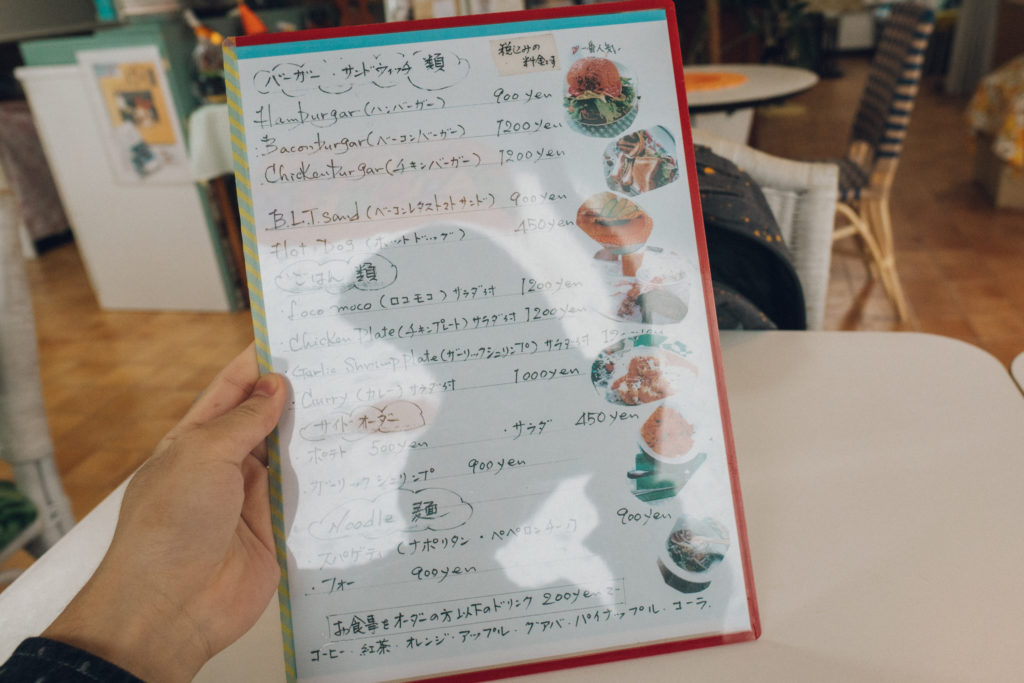 バーガー・サンドウィッチ 類
税込みの
料金です
一番人気
・Hamburgar (ハンバーガー) 900yen
・Baconburgar (ベーコンバーガー) 1200yen
・Chickenburgar (チキンバーガー) 1200yen
・B.L.T.sand (ベーコンレタストマトサンド) 900yen
・Hot Dog (ホットドッグ) 450yen
ごはん 類
・Loco moco (ロコモコ) サラダ付 1200yen
・Chicken Plate (チキンプレート) サラダ付 1200yen
・Garlic Shrimp plate (ガーリックシュリンプ) サラダ付
・Curry (カレー) サラダ付 1000yen
サイドオーダー
・ポテト 500yen ・サラダ 450yen
・ガーリックシュリンプ 900yen
Noodle 麺
・スパゲティ (ナポリタン・ペペロンチーノ) 900yen
・フォー 900yen
お食事をオーダーの方以下のドリンク 200yen
コーヒー・紅茶・オレンジ・アップル・グアバ・パイナップル・コーラ.